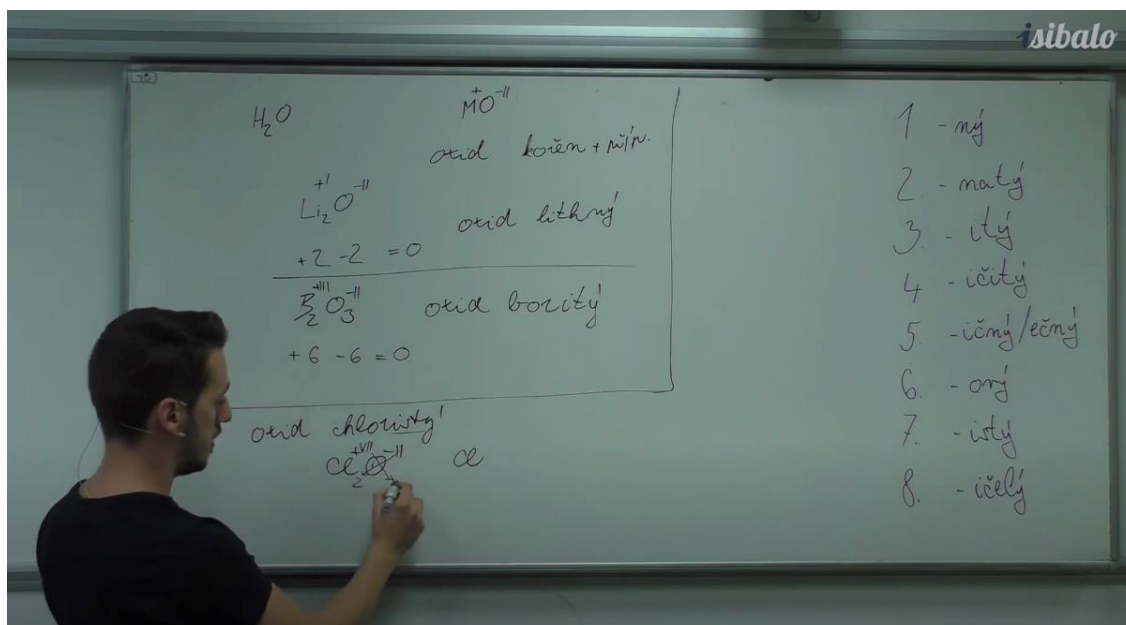 isibalo
H₂O
M⁺O⁻ᴵᴵ
oxid kořen + 
Li₂⁺ᴵO⁻ᴵᴵ
oxid lithný
+2 -2 = 0
B₂⁺ᴵᴵᴵO₃⁻ᴵᴵ oxid boritý
+6 -6 = 0
oxid chloristý
Cl₂⁺ⱽᴵᴵO⁻ᴵᴵ Cl
1 - ný
2. - natý
3. - itý
4 - ičitý
5. - ičný/ečný
6. - ový
7. - istý
8. - ičelý